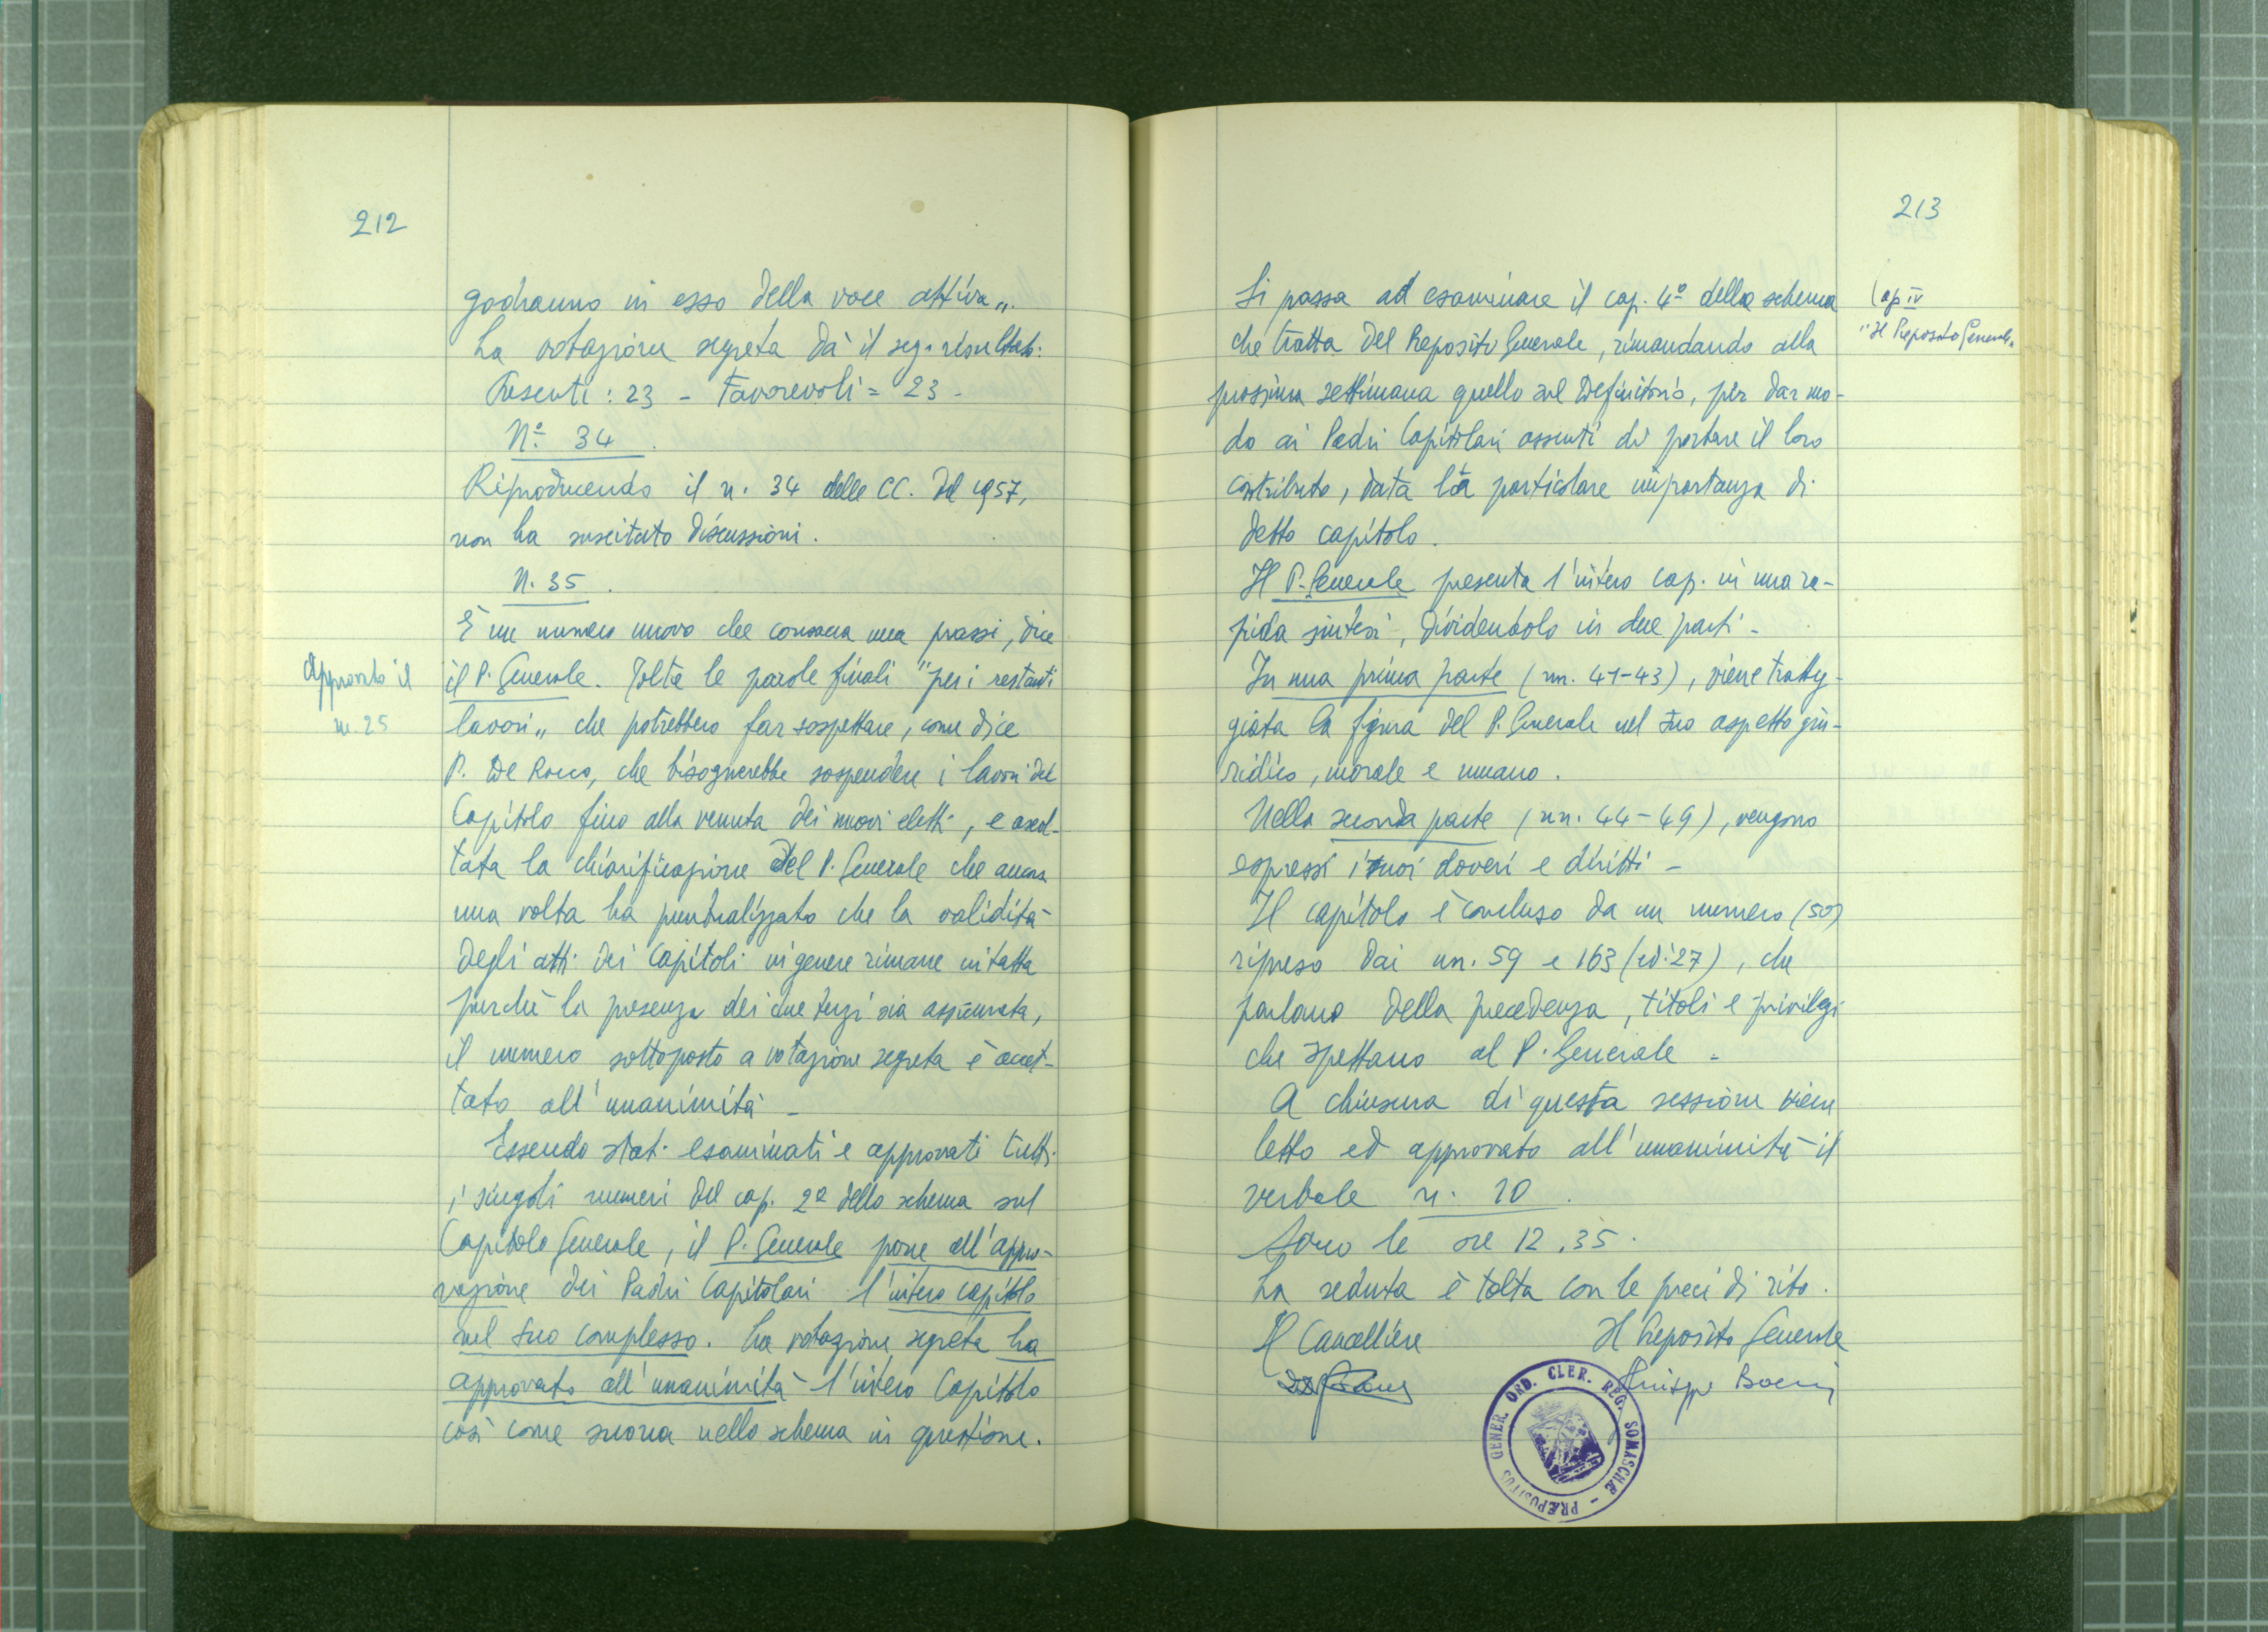 212
godranno in esso della voce attiva„.
La votazione segreta dà il seg. risultato:
Presenti: 23 - Favorevoli = 23 -
N.º 34.
Riproducendo il n. 34 delle CC. del 1957,
non ha suscitato discussioni.
N. 35.
È un numero nuovo che consacra una prassi, dice
il P. Generale. Tolte le parole finali "per i restanti
lavori„ che potrebbero far sospettare, come dice
P. De Rocco, che bisognerebbe sospendere i lavori del
Capitolo fino alla venuta dei nuovi eletti, e ascol-
tata la chiarificazione del P. Generale che ancora
una volta ha puntualizzato che la validità
degli atti dei Capitoli in genere rimane intatta
purché la presenza dei due terzi sia assicurata,
il numero sottoposto a votazione segreta è accet-
tato all'unanimità -
Essendo stati esaminati e approvati tutti
i singoli numeri del cap. 2º dello schema sul
Capitolo Generale, il P. Generale pone all'appro-
vazione dei Padri Capitolari l'intero capitolo
nel suo complesso. La votazione segreta ha
approvato all'unanimità l'intero Capitolo
così come suona nello schema in questione.
Approvato il
n. 25
213
Si passa ad esaminare il cap. 4º dello schema
che tratta del Preposito Generale, rimandando alla
prossima settimana quello sul Definitorio, per dar mo-
do ai Padri Capitolari assenti di portare il loro
contributo, data la particolare importanza di
detto capitolo.
Il P. Generale presenta l'intero cap. in una ra-
pida sintesi, dividendolo in due parti -
In una prima parte (nn. 41-43), viene tratteg-
giata la figura del P. Generale nel suo aspetto giu-
ridico, morale e umano.
Nella seconda parte (nn. 44-49), vengono
espressi i suoi doveri e diritti -
Il capitolo è concluso da un numero (50)
ripreso dai nn. 59 e 163 (ed. 27), che
parlano della precedenza, titoli e privilegi
che spettano al P. Generale -
A chiusura di questa sessione viene
letto ed approvato all'unanimità il
verbale n. 20.
Sono le ore 12.35.
La seduta è tolta con le preci di rito.
Il Cancelliere Il Preposito Generale
Giuseppe Boeris
Cap IV
"Il Preposito Generale„
PRÆPOSITUS GENER. ORD. CLER. REG. SOMASCHÆ -